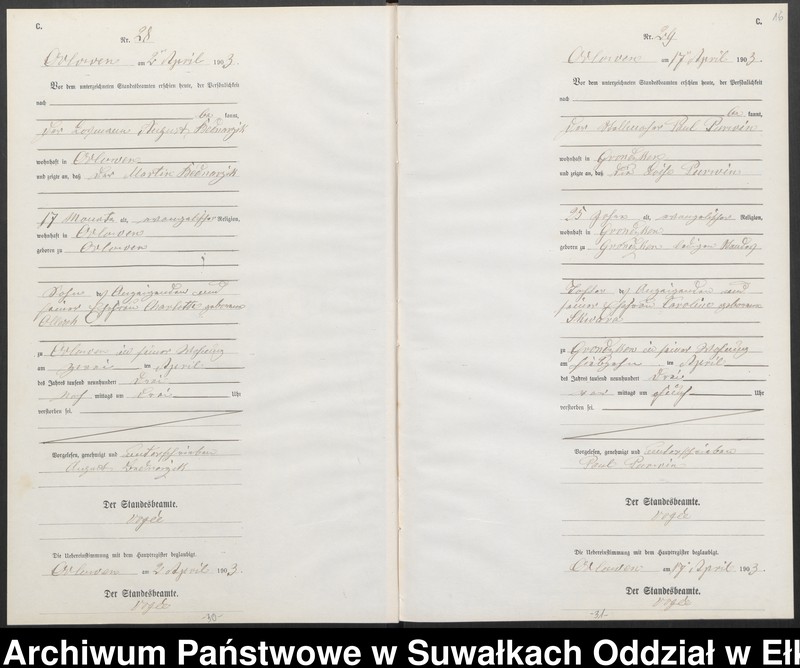 C.
Nr. 28
Orlowen am 2 April 1903.
Vor dem unterzeichneten Standesbeamten erschien heute, der Persönlichkeit
nach
be kannt,
der August Bednarzik
wohnhaft in Orlowen
und zeigte an, daß der Martin Bednarzik
17 Monate alt, evangelischer Religion,
wohnhaft in Orlowen
geboren zu Orlowen
Sohn des Anzeigenden und
seiner Ehefrau Charlotte geborene
zu Orlowen in seiner Wohnung
am zwei ten April
des Jahres tausend neunhundert drei
Vor mittags um drei Uhr
verstorben sei.
Vorgelesen, genehmigt und unterschrieben
August Bednarzik
Der Standesbeamte.
Die Uebereinstimmung mit dem Hauptregister beglaubigt.
Orlowen am 2 April 1903.
Der Standesbeamte.
30
C. 16
Nr. 29
Orlowen am 17 April 1903.
Vor dem unterzeichneten Standesbeamten erschien heute, der Persönlichkeit
nach
be kannt,
der Paul Purwin
wohnhaft in Grondzken
und zeigte an, daß die Purwin
25 Jahre alt, evangelischer Religion,
wohnhaft in Grondzken
geboren zu Grondzken ledigen Standes
Tochter des Anzeigenden und
seiner Ehefrau Caroline geborene
Skwara
zu Grondzken in seiner Wohnung
am siebzehn ten April
des Jahres tausend neunhundert drei
Vor mittags um Uhr
verstorben sei.
Vorgelesen, genehmigt und unterschrieben
Paul Purwin
Der Standesbeamte.
Die Uebereinstimmung mit dem Hauptregister beglaubigt.
Orlowen am 17 April 1903.
Der Standesbeamte.
31
Archiwum Państwowe w Suwałkach Oddział w Eł